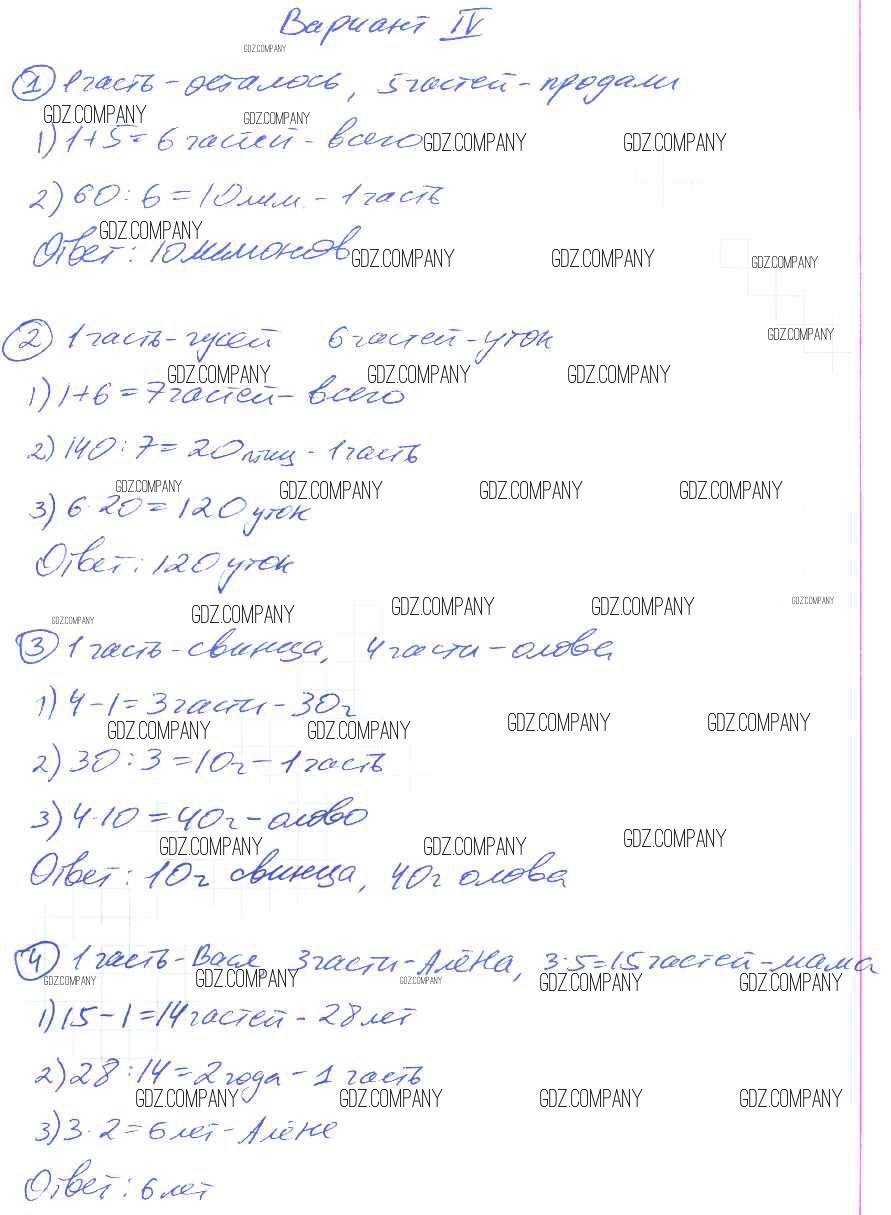 Вариант IV
GDZ.COMPANY
① 1 часть - осталось, 5 частей - продали
GDZ.COMPANY GDZ.COMPANY
1) 1+5 = 6 частей - всего GDZ.COMPANY GDZ.COMPANY
2) 60 : 6 = 10 лим. - 1 часть
GDZ.COMPANY
Ответ: 10 лимонов GDZ.COMPANY GDZ.COMPANY GDZ.COMPANY
② 1 часть - гусей 6 частей - уток GDZ.COMPANY
GDZ.COMPANY GDZ.COMPANY GDZ.COMPANY
1) 1+6 = 7 частей - всего
2) 140 : 7 = 20 птиц - 1 часть
GDZ.COMPANY GDZ.COMPANY GDZ.COMPANY GDZ.COMPANY
3) 6 · 20 = 120 уток
Ответ: 120 уток
GDZ.COMPANY GDZ.COMPANY GDZ.COMPANY GDZ.COMPANY GDZ.COMPANY
③ 1 часть - свинца, 4 части - олова
1) 4 - 1 = 3 части - 30 г
GDZ.COMPANY GDZ.COMPANY GDZ.COMPANY GDZ.COMPANY
2) 30 : 3 = 10 г - 1 часть
3) 4 · 10 = 40 г - олово
GDZ.COMPANY GDZ.COMPANY GDZ.COMPANY
Ответ: 10 г свинца, 40 г олова
④ 1 часть - Вася, 3 части - Алёна, 3·5=15 частей - мама
GDZ.COMPANY GDZ.COMPANY GDZ.COMPANY GDZ.COMPANY GDZ.COMPANY
1) 15 - 1 = 14 частей - 28 лет
2) 28 : 14 = 2 года - 1 часть
GDZ.COMPANY GDZ.COMPANY GDZ.COMPANY GDZ.COMPANY
3) 3 · 2 = 6 лет - Алёне
Ответ: 6 лет